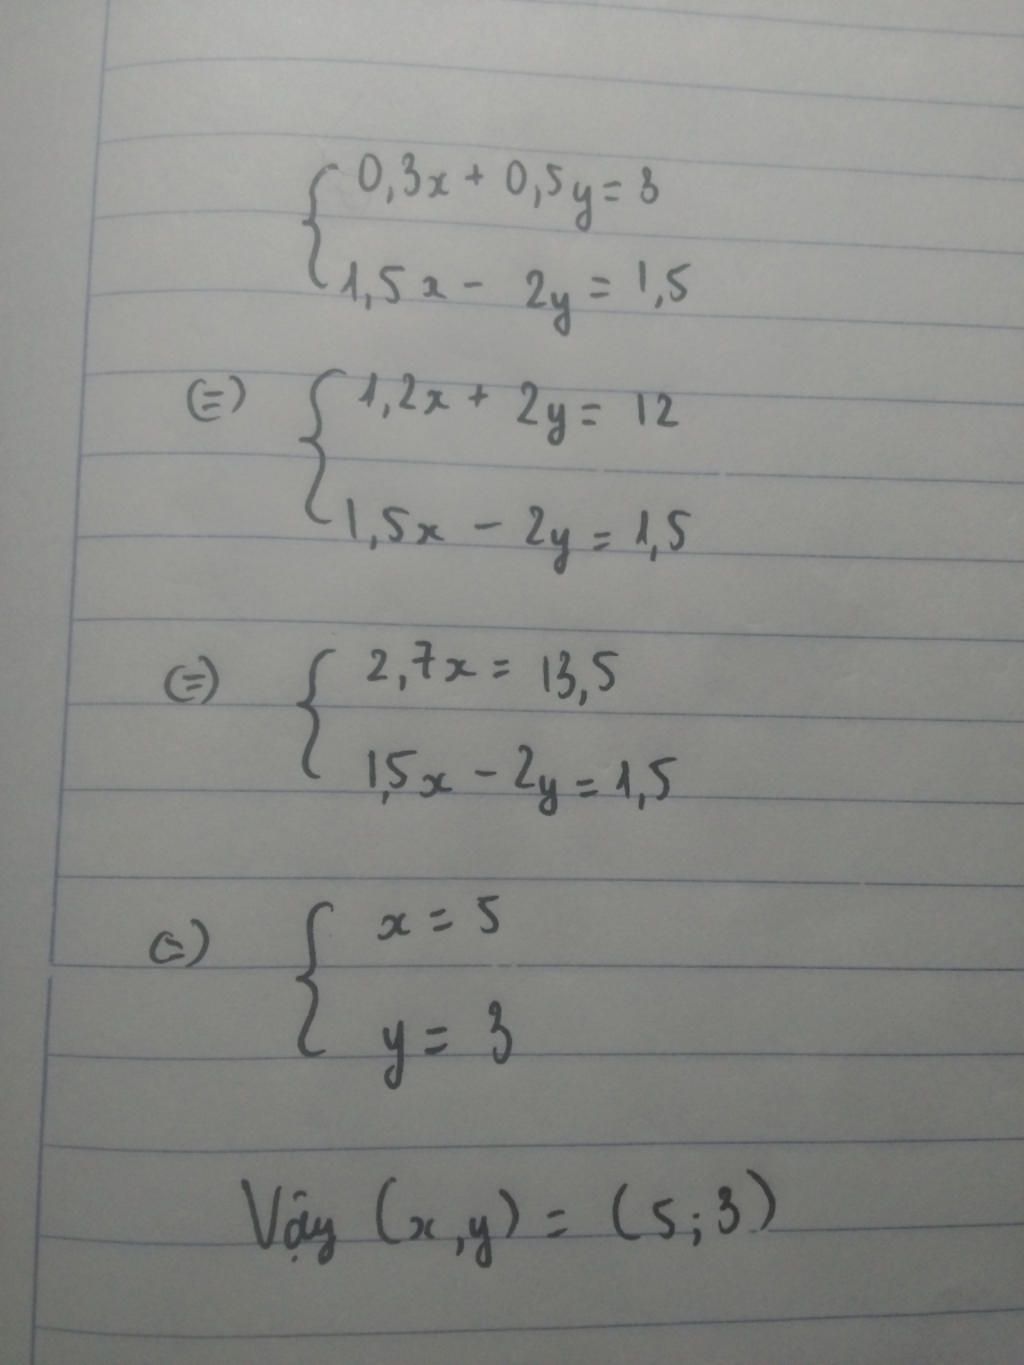 0,3x + 0,5y = 3
1,5x - 2y = 1,5
(=) 1,2x + 2y = 12
1,5x - 2y = 1,5
(=) 2,7x = 13,5
1,5x - 2y = 1,5
(=) x = 5
y = 3
Vậy (x,y) = (5;3)